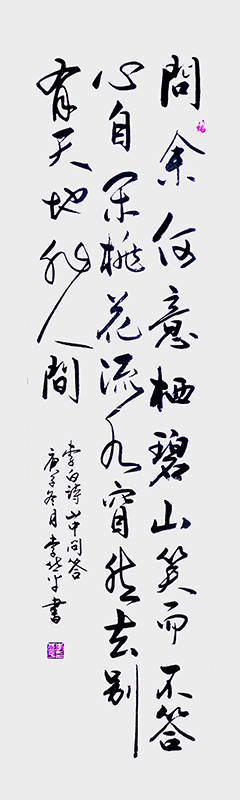 問余何意栖碧山笑而不答
心自閑桃花流水窅然去别
有天地非人間
李白詩山中問答
庚子冬月李平書